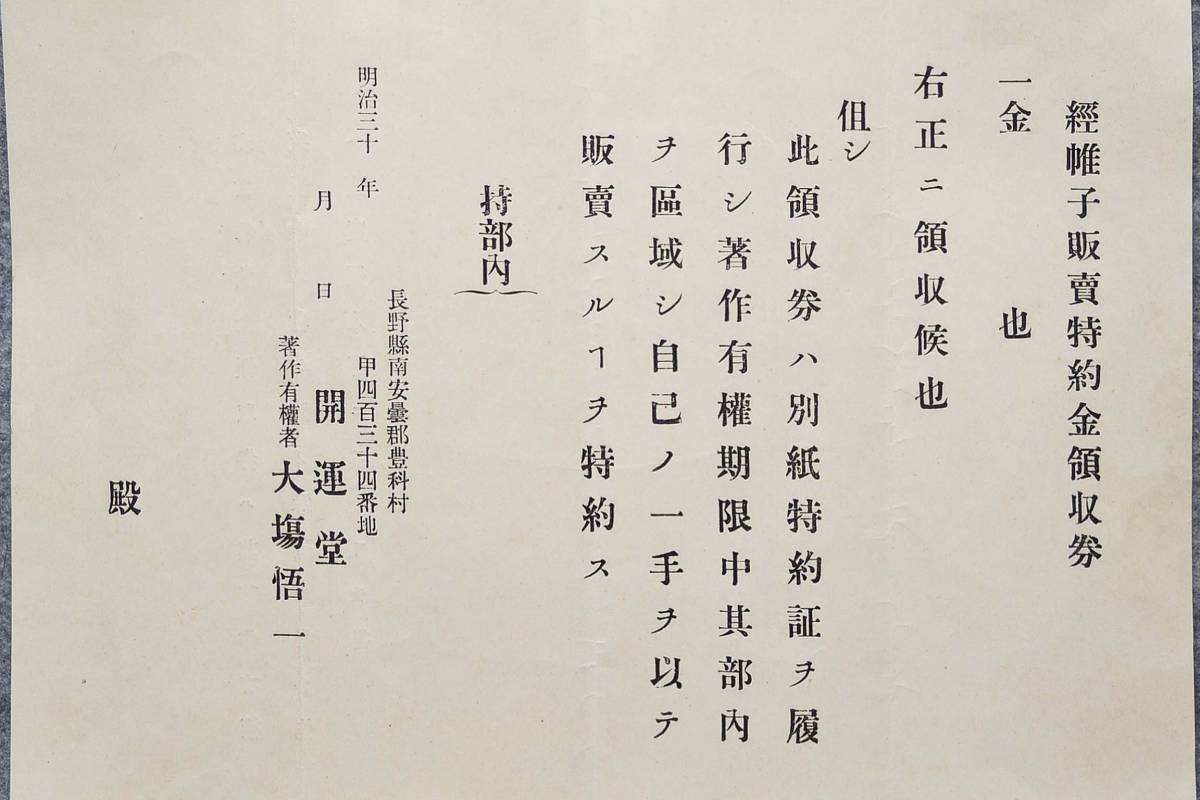 經帷子販賣特約金領収券
一金 也
右正ニ領収候也
伹シ
此領収券ハ別紙特約証ヲ履
行シ著作有權期限中其部内
ヲ區域シ自己ノ一手ヲ以テ
販賣スルヿヲ特約ス
持部内
長野縣南安曇郡豊科村
甲四百三十四番地
明治三十 年
月 日 開運堂
著作有權者 大塲悟一
殿